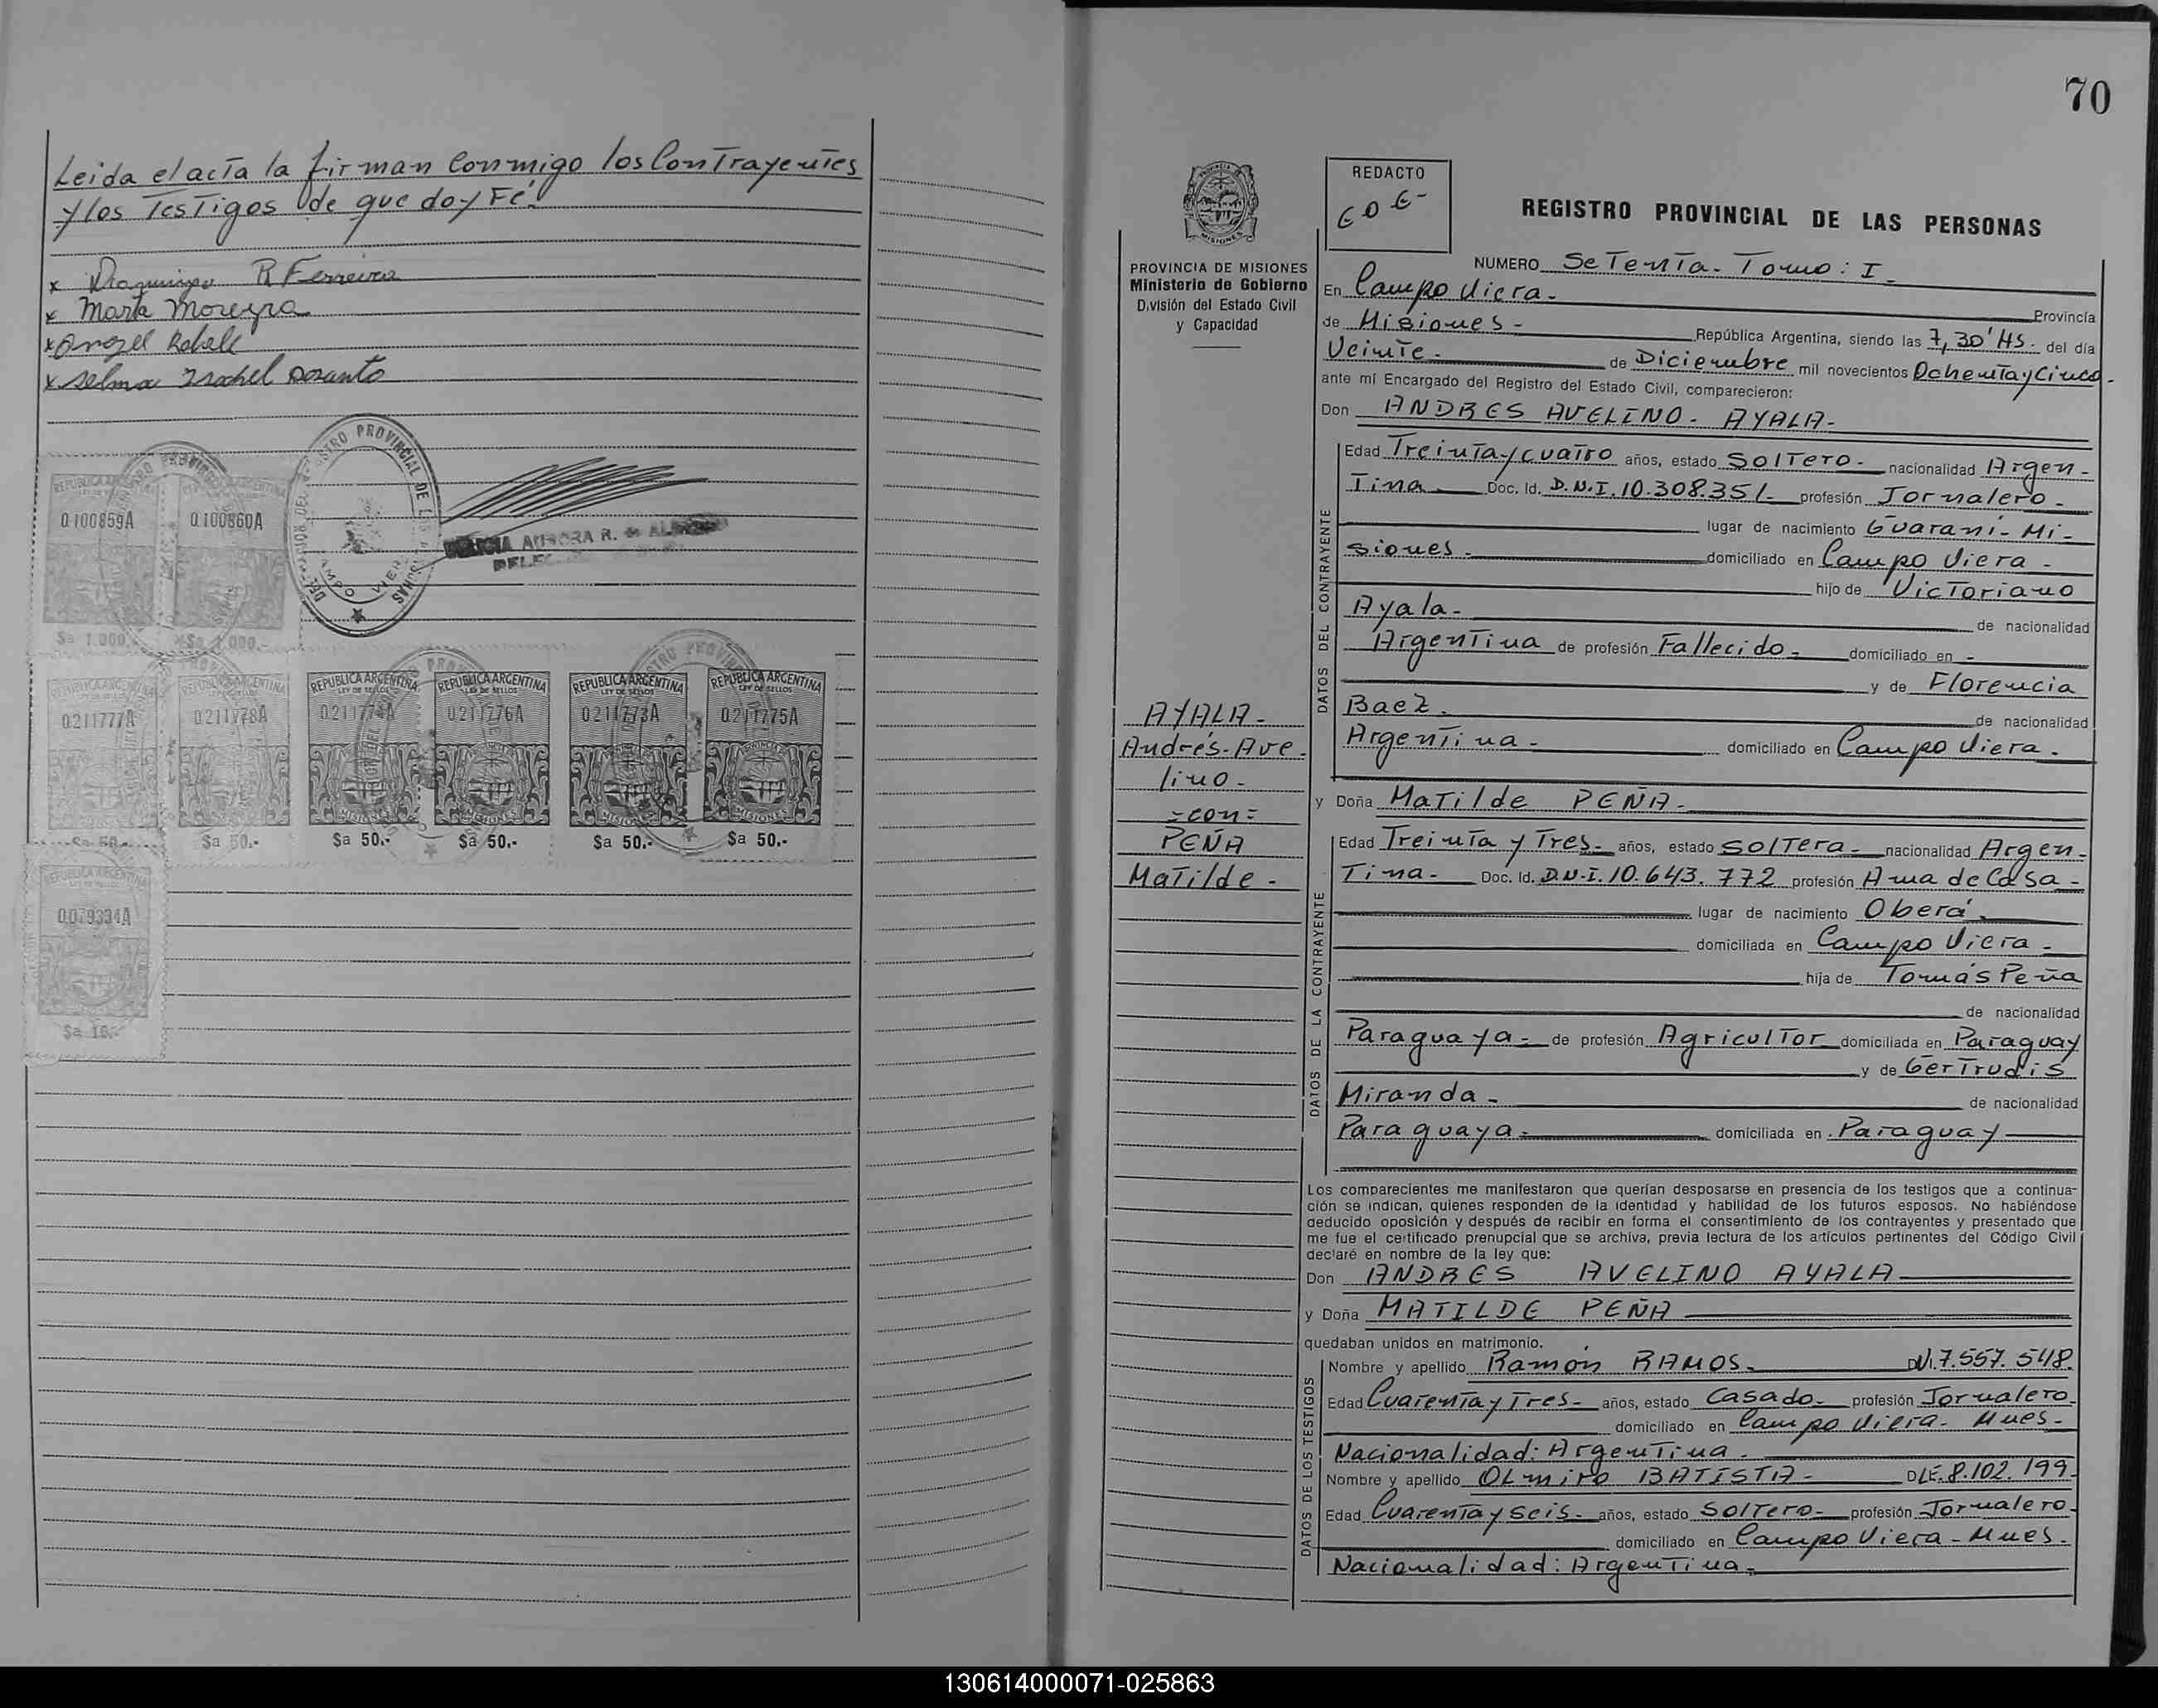 Leida el acta la firman Conmigo los Contrayentes
y los Testigos de que doy Fé.
x R Ferreira
x Marta Moreyra
x Angel
x Selma Isabel Dosanto
REGISTRO PROVINCIAL DE LAS PERSONAS
CAMPO VIERA
AURORA R. de
REPUBLICA ARGENTINA REPUBLICA ARGENTINA
LEY DE SELLOS
0.100859A 0.100860A
$a 1.000.- $a 1.000.-
REPUBLICA ARGENTINA REPUBLICA ARGENTINA REPUBLICA ARGENTINA REPUBLICA ARGENTINA REPUBLICA ARGENTINA REPUBLICA ARGENTINA
LEY DE SELLOS LEY DE SELLOS LEY DE SELLOS LEY DE SELLOS
0.211777A 0.211778A 0.211774A 0.211776A 0.211773A 0.211775A
MISIONES MISIONES MISIONES MISIONES
$a 50.- $a 50.- $a 50.- $a 50.- $a 50.- $a 50.-
REPUBLICA ARGENTINA
0.079334A
$a 10.-
70
MISIONES
PROVINCIA DE MISIONES
Ministerio de Gobierno
División del Estado Civil
y Capacidad
AYALA-
Andrés-Ave
lino-
=con=
PEÑA
Matilde-
REDACTO
REGISTRO PROVINCIAL DE LAS PERSONAS
NUMERO Setenta- Tomo: I-
En Campo Viera- Provincia
de Misiones- República Argentina, siendo las 7,30' HS- del día
Veinte- de Diciembre mil novecientos Ochenta y Cinco-
ante mí Encargado del Registro del Estado Civil, comparecieron:
Don ANDRES AVELINO- AYALA-
DATOS DEL CONTRAYENTE
Edad Treinta y cuatro años, estado Soltero- nacionalidad Argen-
tina- Doc. Id. D.N.I. 10.308.351- profesión Jornalero-
lugar de nacimiento Guaraní- Mi-
siones- domiciliado en Campo Viera-
hijo de Victoriano
Ayala- de nacionalidad
Argentina de profesión Fallecido- domiciliado en -
y de Florencia
Baez. de nacionalidad
Argentina- domiciliado en Campo Viera.
y Doña Matilde PEÑA-
DATOS DE LA CONTRAYENTE
Edad Treinta y Tres- años, estado Soltera- nacionalidad Argen-
tina- Doc. Id. D.N.I. 10.643.772 profesión Ama de Casa-
lugar de nacimiento Oberá-
domiciliada en Campo Viera-
hija de Tomás Peña
de nacionalidad
Paraguaya- de profesión Agricultor domiciliada en Paraguay
y de Gertrudis
Miranda- de nacionalidad
Paraguaya- domiciliada en Paraguay
Los comparecientes me manifestaron que querían desposarse en presencia de los testigos que a continua-
ción se indican, quienes responden de la identidad y habilidad de los futuros esposos. No habiéndose
deducido oposición y después de recibir en forma el consentimiento de los contrayentes y presentado que
me fue el certificado prenupcial que se archiva, previa lectura de los artículos pertinentes del Código Civil
declaré en nombre de la ley que:
Don ANDRES AVELINO AYALA
y Doña MATILDE PEÑA
quedaban unidos en matrimonio.
DATOS DE LOS TESTIGOS
Nombre y apellido Ramón RAMOS- DNI. 7.557.548.
Edad Cuarenta y Tres- años, estado Casado- profesión Jornalero
domiciliado en Campo Viera- Mnes-
Nacionalidad: Argentina-
Nombre y apellido OLmiro BATISTA- DLE. 8.102.199-
Edad Cuarenta y seis- años, estado Soltero- profesión Jornalero-
domiciliado en Campo Viera- Mnes-
Nacionalidad: Argentina-
130614000071-025863